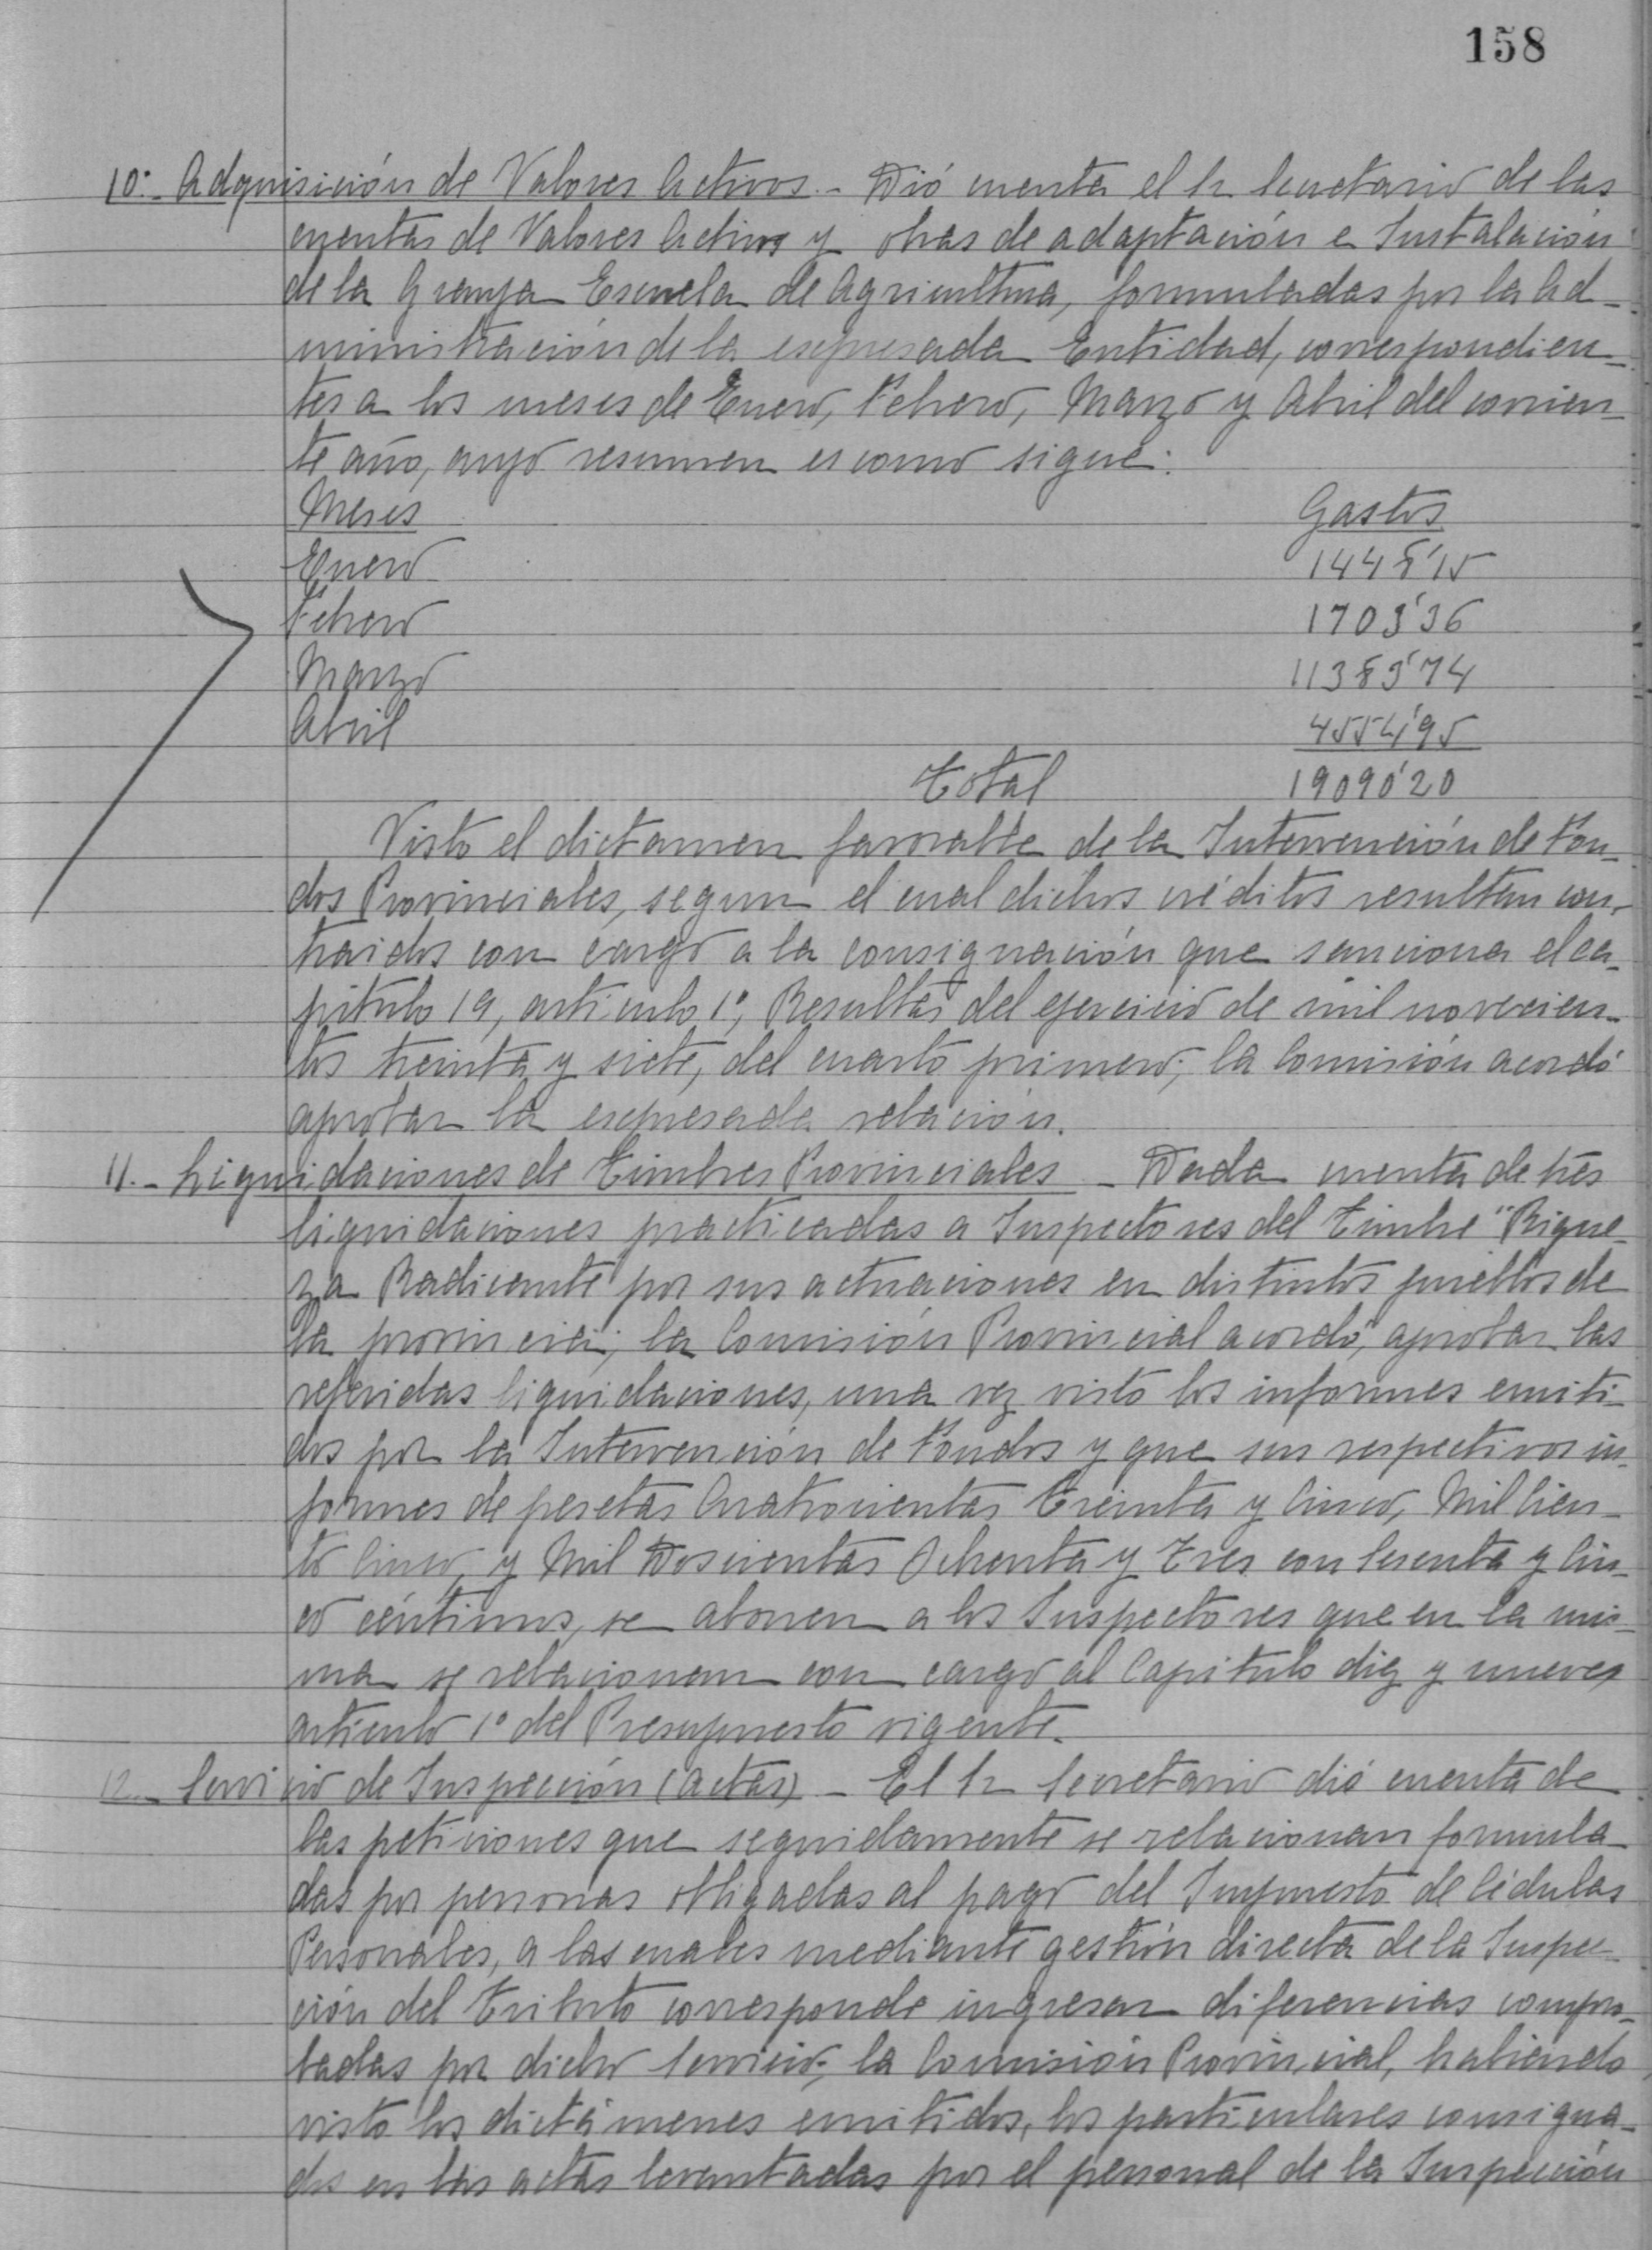 158
10º.- Adquisición de Valores Activos.- Dió cuenta el Sr Secretario de las
cuentas de Valores Activos y obras de adaptación e Instalación
de la Granja Escuela de Agricultura, formuladas por la Ad-
ministración de la expresada Entidad, correspondien-
tes a los meses de Enero, Febrero, Marzo y Abril del corrien-
te año, cuyo resumen es como sigue:
Meses Gastos
Enero 1448'15
Febrero 1703'36
Marzo 11383'74
Abril 4554'95
Total 19090'20
Visto el dictamen favorable de la Intervención de Fon-
dos Provinciales, segun el cual dichos créditos resultan con-
traidos con cargo a la consignación que sanciona el ca-
pitulo 19, articulo 1º, Resultas del ejercicio de mil novecien-
tos treinta y siete, del cuarto primero; la Comisión acordó
aprobar la expresada relación.
11.- Liquidaciones de Timbres Provinciales - Dada cuenta de tres
liquidaciones practicadas a Inspectores del Timbre "Rique-
za Radicante" por sus actuaciones en distintos pueblos de
la provincia; la Comisión Provincial acordó, aprobar las
referidas liquidaciones, una vez visto los informes emiti-
dos por la Intervención de Fondos y que sus respectivos in-
formes de pesetas Cuatrocientas Treinta y Cinco, Mil Cien-
to Cinco, y Mil Doscientas Ochenta y Tres con Sesenta y Cin-
co céntimos, se abonen a los Inspectores que en la mis-
ma se relacionan con cargo al Capitulo diez y nueve,
articulo 1º del Presupuesto vigente.
12.- Servicio de Inspección (Actas) - El Sr Secretario dió cuenta de
las peticiones que seguidamente se relacionan formula-
das por personas obligadas al pago del Impuesto de Cédulas
Personales, a las cuales mediante gestión directa de la Inspec-
ción del Tributo corresponde ingresar diferencias compro-
badas por dicho Servicio; la Comisión Provincial, habiendo
visto los dictámenes emitidos, los particulares consigna-
dos en las actas levantadas por el personal de la Inspección